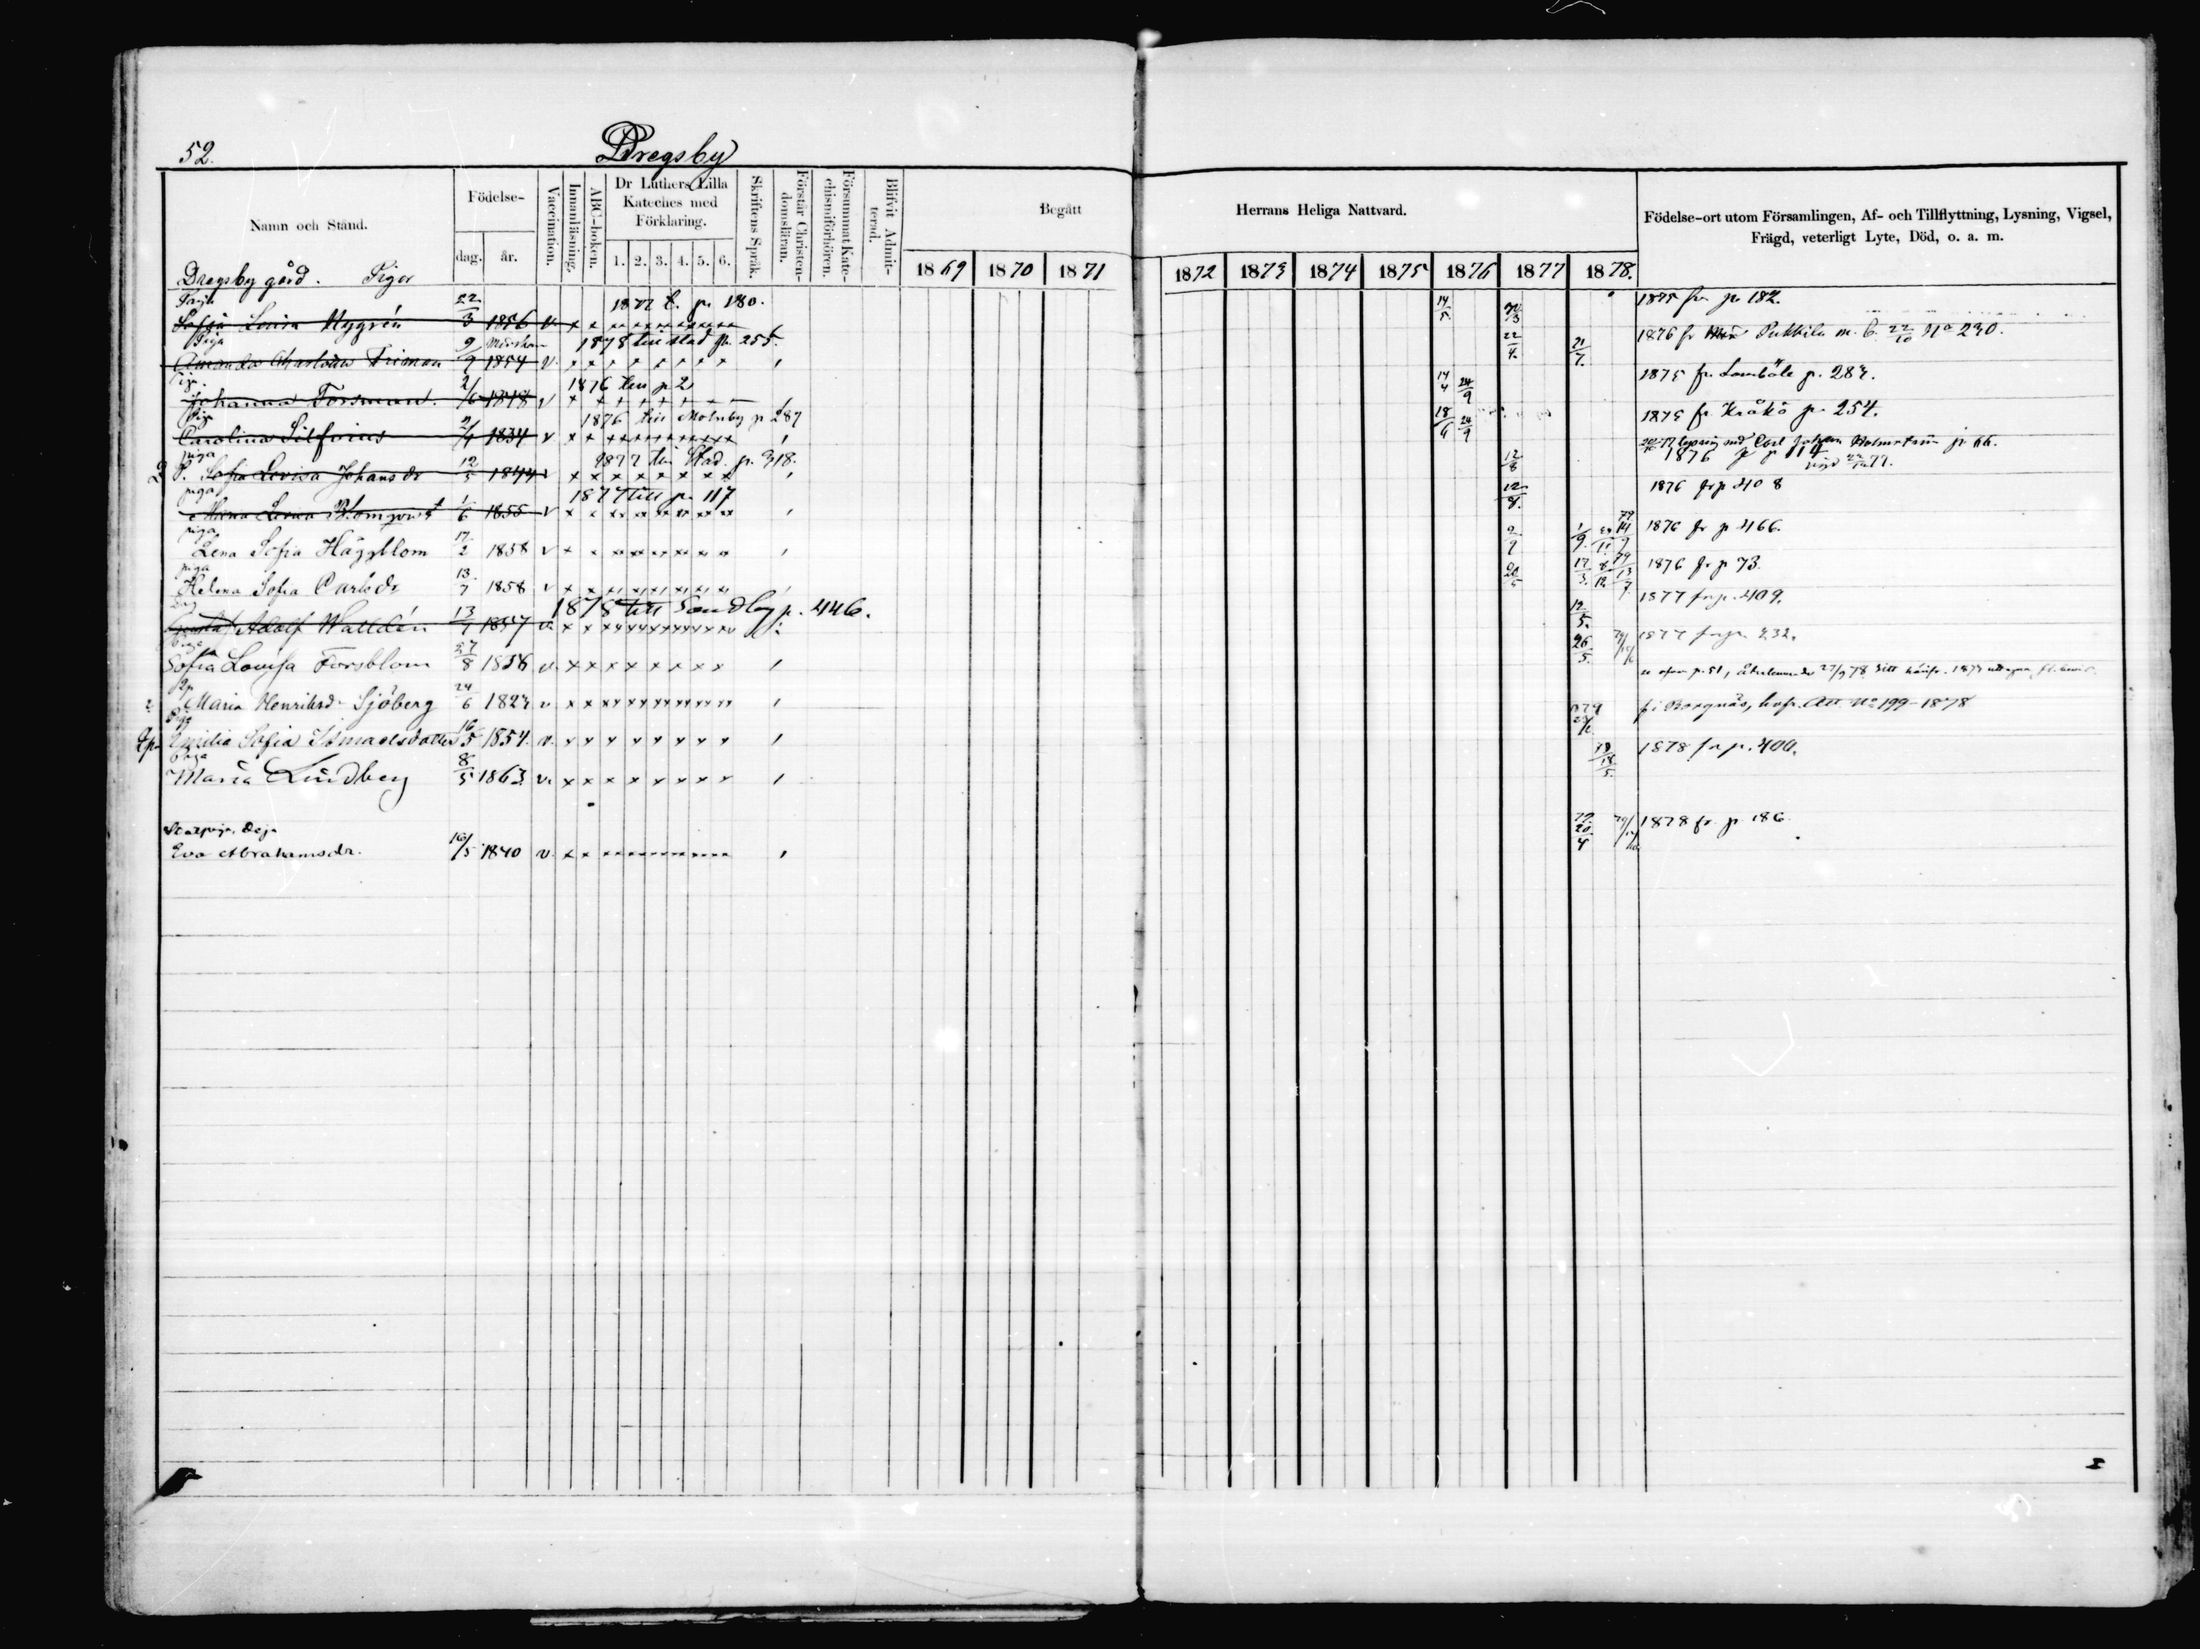 52.
Dregsby
Namn och Stånd.
Födelse-
dag. år.
Vaccination.
Innanläsning.
ABC-boken.
Dr Luthers Lilla
Kateches med
Förklaring.
1. 2. 3. 4. 5. 6.
Skriftens Språk.
Förstår Christen-
domsläran.
Försummat Kate-
chismiförhören.
Blifvit Admit-
terad.
Begått
Herrans Heliga Nattvard.
1869 1870 1871
1872 1873 1874 1875 1876 1877 1878.
Födelse-ort utom Församlingen, Af- och Tillflyttning, Lysning, Vigsel,
Frägd, veterligt Lyte, Död, o. a. m.
Dregsby gård. Pigor
Piga 1877 t. p. 180.
Sofia Lovisa Nygrén 22/3 1856 v. 14/5 1875 fr p. 182.
Piga 1878 till stad p. 255.
Amanda Charlotta Friman 9/9 1854 v. 22/4 21/7 1876 fr Pukkila m. b. 22/10 No 230.
Piga 1876 till p 2
Johanna Forsman. 2/6 1848 v 14/4 24/9 1875 fr. Lomböle p. 287.
Piga 1876 till Molnby p 287
Carolina Silfvius 2/4 1834 v 18/6 24/9 1875 fr Kråkö p. 254.
lysning med Carl Johan Holmström p 66.
piga 1877 till Stad p. 318.
P. Sofia Lovisa Johansdr 12/5 1844 v 12/8 1876 fr p 114 77.
piga 1877 till p. 117
Lovisa Blomqvist 1/6 1855 v 12/8. 1876 fr p 408
piga
Lena Sofia Häggblom 17/2 1858 v 2/9 1/9 1876 fr p 466.
piga
Helena Sofia Carlsdr 13/7 1858 v 20/5 17/3 1876 fr p 73.
1878 till Sandby p. 446.
Adolf Walldén 13/1 1857 v. 12/5. 1877 fr p. 409.
Piga
Sofia Lovisa Forsblom 27/8 1856 v. 26/5. 1877 fr p. 432.
Maria Henriksdr Sjöberg 24/6 1827 v p. 51, 27/9 78
Piga
Emilia Sofia Ismaelsdotter 16/5 1854. v. fr Borgnäs, hofr. Att. No 199-1878
Piga
Maria Lindberg 8/5 1863. v. 1878 fr p. 400.
Deja
Eva Abrahamsdr. 16/5 1840 v. 79 20/4 1878 fr. p 186.